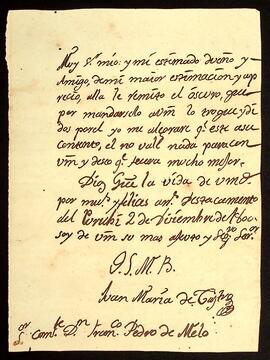 Muy Sr. mio: y mi estimado dueño y
Amigo, de mi maior estimación y ap
recio, alla le remito el oscuro, que
por mandarselo a Vm lo troque y di
dos por el yo me alegrare qe. este a su
contento, el no vale nada para con
Vm y deseo qe. fuera mucho mejor.
Dios Gue la vida de Vmd
por mus. y felices as. Destacamento
del 2 de Diziembre de
soy de Vm su mas afecto y Sego. Servr.
Q. S. M. B.
Juan Maria de
Sor. Comte. Dn. Franco. Pedro de Melo